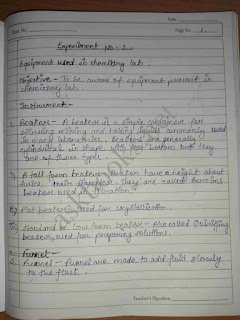 Date
Page No. 1.
Experiment No - 1
Equipment used in chemistry lab
Objective - To be aware of equipment present in
chemistry lab.
Instrument -
1. Beaker - A beaker is a simple container for
stirring mixing and heating liquids commonly used
in many laboratories. Beakers are generally
cylindrical in shape with flat bottom but they
are of three type.
A tall form beaker - Beaker have a height about
twice their diameter. They are called Berzelius
beaker used in titration.
Flat beaker - used for crystallization
Standard or low form beaker - Also called Griffin
beaker, used for preparing solutions.
Funnel -
Funnel - Funnel are made to add fluid slowly
to the flask.
Teacher's Signature